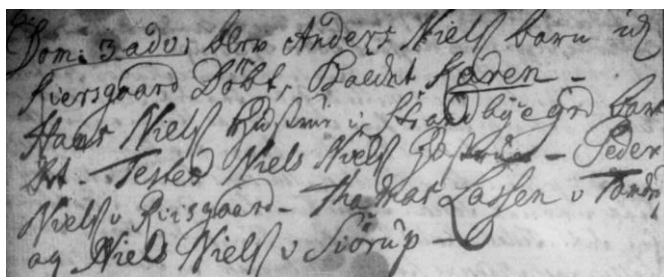 Dom: 3 adv: blev Anders Niels barn i
Kiersgaard Döbt, Kaldet Karen –
Hans Niels Hustrue i Strandbÿegrd bar
det. Testes Niels Niels Hustrue – Peder
Niels v Riisgaard – Thomas Lassen v
og Niels Niels v Siörup –